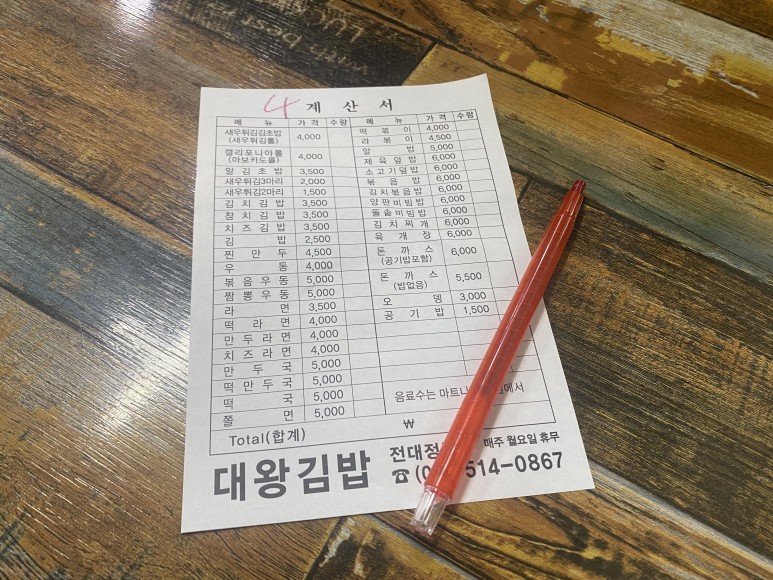 4 계산서
메뉴 가격 수량 메뉴 가격 수량
새우튀김김초밥 (새우튀김롤) 4,000
캘리포니아롤 (아보카도롤) 4,000
알김초밥 3,500
새우튀김3마리 2,000
새우튀김2마리 1,500
김치김밥 3,500
참치김밥 3,500
치즈김밥 3,500
김밥 2,500
찐만두 4,500
우동 4,000
볶음우동 5,000
짬뽕우동 5,000
라면 3,500
떡라면 4,000
만두라면 4,000
치즈라면 4,000
만두국 5,000
떡만두국 5,000
떡국 5,000
쫄면 5,000
떡볶이 4,000
라볶이 4,500
알밥 5,000
제육덮밥 6,000
소고기덮밥 6,000
볶음밥 6,000
김치볶음밥 6,000
양판비빔밥 6,000
돌솥비빔밥 6,000
김치찌개 6,000
육개장 6,000
돈까스 (공기밥포함) 6,000
돈까스 (밥없음) 5,500
오뎅 3,000
공기밥 1,500
음료수는 마트나 에서
Total(합계) ₩
대왕김밥
전대정 매주 월요일 휴무
☎(0 514-0867